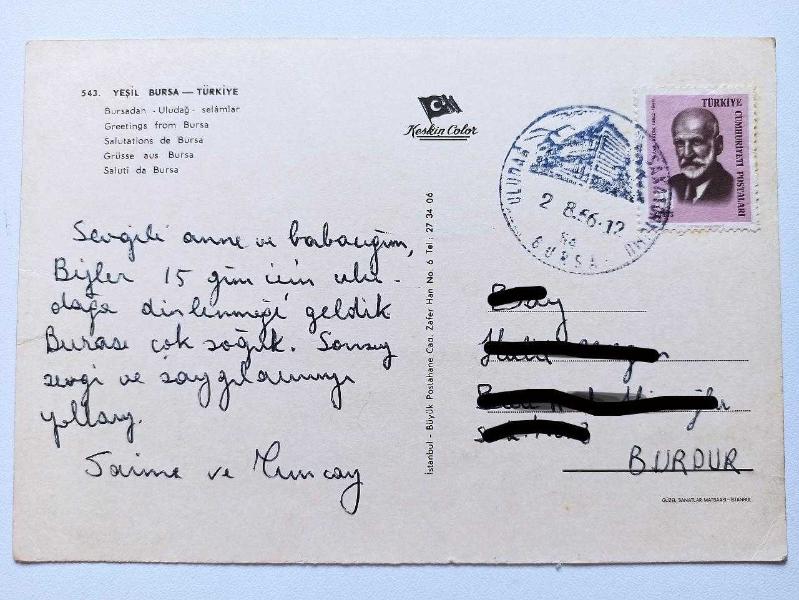 543. YEŞİL BURSA — TÜRKİYE
Bursadan - Uludağ - selâmlar
Greetings from Bursa
Salutations de Bursa
Grüsse aus Bursa
Saluti da Bursa
Keskin Color
TÜRKİYE
CUMHURİYETİ POSTALARI
ULUDAĞ
2 8.66-12
BURSA
Sevgili anne ve babacığım,
Bizler 15 gün için ulu-
dağa dinlenmeği geldik
Burası çok soğuk. Sonsuz
sevgi ve saygılarımızı
yollarız.
Saime ve Tuncay
İstanbul - Büyük Postahane Cad. Zafer Han No. 6 Tel: 27 34 06
Bay
BURDUR
GÜZEL SANATLAR MATBAASI - İSTANBUL